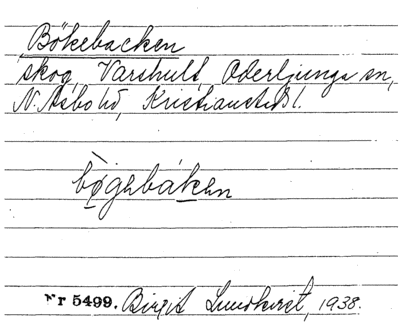 Bökebacken
skog, Varshult, Oderljunga sn,
N. Åsbo hd, Kristianstads l.
bø̀gebáken
Nr 5499. Birgit Lundkvist, 1938.